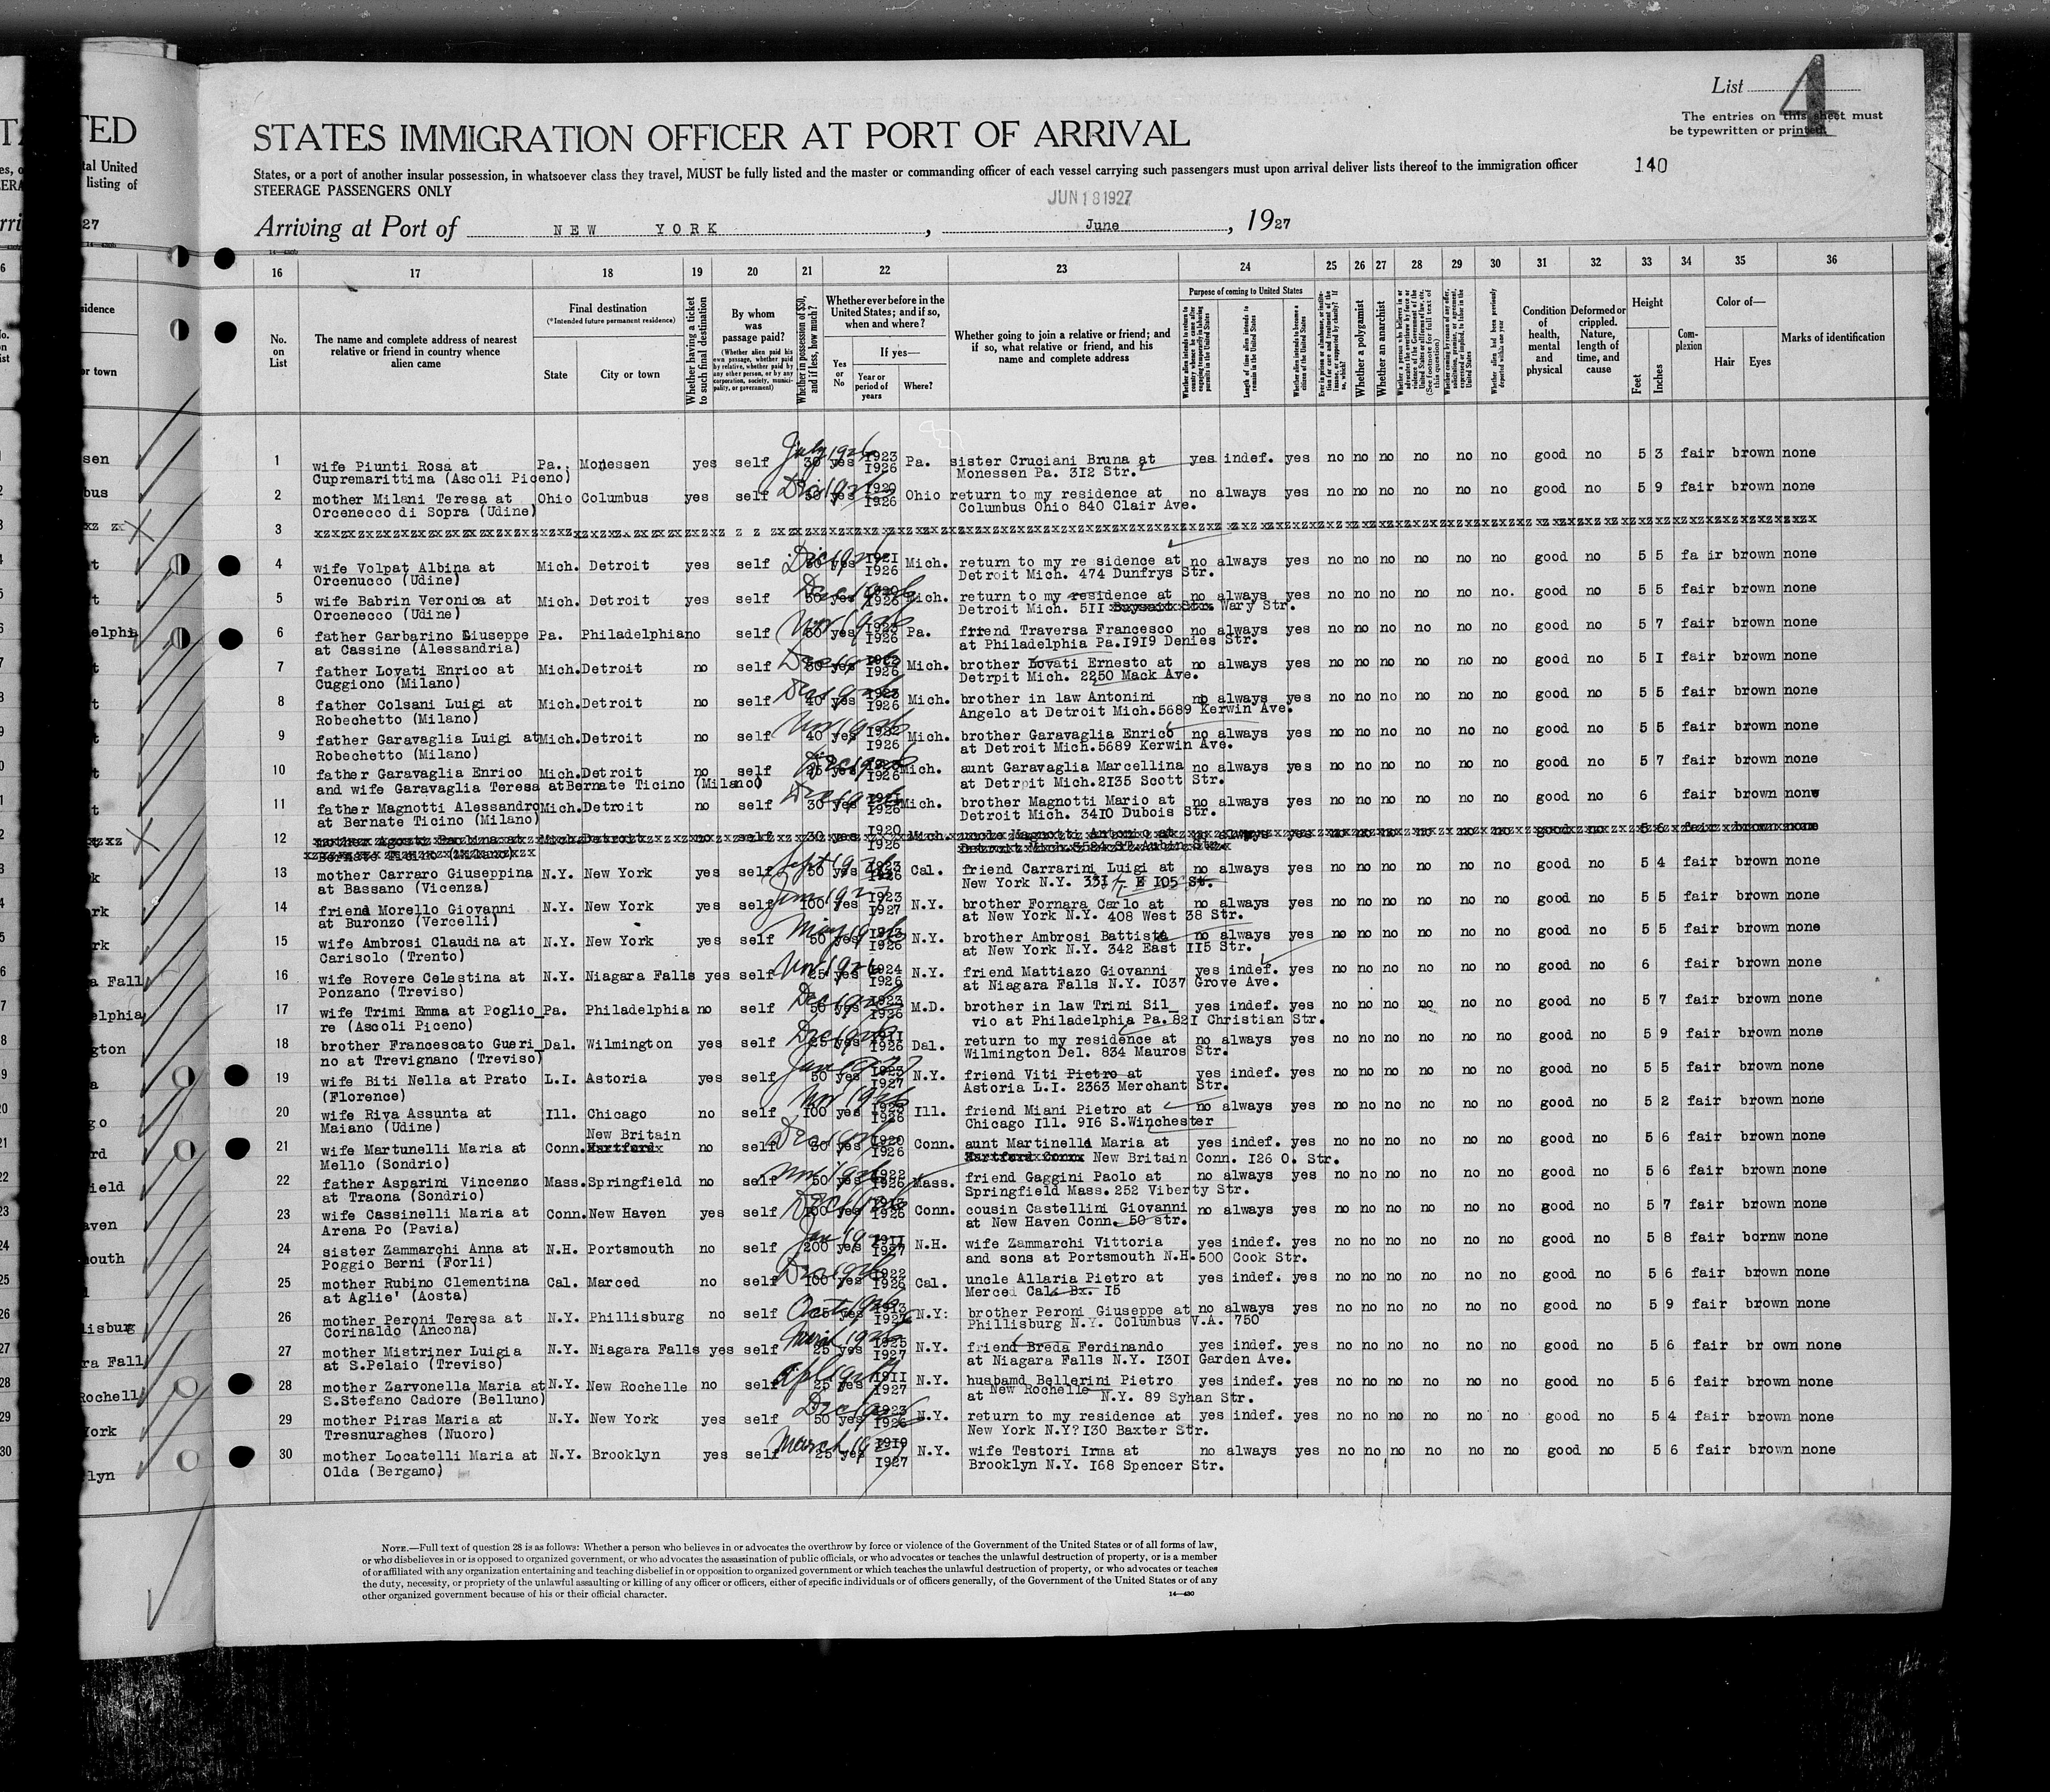 List 4
The entries on this sheet must
be typewritten or printed.
140
STATES IMMIGRATION OFFICER AT PORT OF ARRIVAL
States, or a port of another insular possession, in whatsoever class they travel, MUST be fully listed and the master or commanding officer of each vessel carrying such passengers must upon arrival deliver lists thereof to the immigration officer
STEERAGE PASSENGERS ONLY
JUN 18 1927
Arriving at Port of NEW YORK, June, 1927
16 17 18 19 20 21 22 23 24 25 26 27 28 29 30 31 32 33 34 35 36
No. on List
The name and complete address of nearest relative or friend in country whence alien came
Final destination
(*Intended future permanent residence)
State City or town
Whether having a ticket to such final destination
By whom was passage paid?
Whether in possession of $50, and if less, how much?
Whether ever before in the United States; and if so, when and where?
Yes or No
If yes—
Year or period of years
Where?
Whether going to join a relative or friend; and if so, what relative or friend, and his name and complete address
Purpose of coming to United States
Whether a polygamist
Whether an anarchist
Condition of health, mental and physical
Deformed or crippled. Nature, length of time, and cause
Height
Feet Inches
Complexion
Color of—
Hair Eyes
Marks of identification
1 wife Piunti Rosa at Pa. Monessen yes self July 1926 30 yes 1923 Pa. sister Cruciani Bruna at yes indef. yes no no no no no no good no 5 3 fair brown none
Cupremarittima (Ascoli Piceno) 1926 Monessen Pa. 312 Str.
2 mother Milani Teresa at Ohio Columbus yes self 50 yes 1920 Ohio return to my residence at no always yes no no no no no no good no 5 9 fair brown none
Orcenecco di Sopra (Udine) 1926 Columbus Ohio 840 Clair Ave.
3
4 wife Volpat Albina at Mich. Detroit yes self Dec 1926 50 yes 1921 Mich. return to my re sidence at no always yes no no no no no no good no 5 5 fa ir brown none
Orcenucco (Udine) 1926 Detroit Mich. 474 Dunfrys Str.
5 wife Babrin Veronica at Mich. Detroit yes self Dec 1926 50 yes Mich. return to my residence at no always yes no no no no no no. good no 5 5 fair brown none
Orcenecco (Udine) 1926 Detroit Mich. 511 Wary Str.
6 father Garbarino Giuseppe Pa. Philadelphia no self Nov 1926 50 yes Pa. friend Traversa Francesco no always yes no no no no no no good no 5 7 fair brown none
at Cassine (Alessandria) 1926 at Philadelphia Pa. 1919 Denies Str.
7 father Lovati Enrico at Mich. Detroit no self Dec 1926 50 yes Mich. brother Lovati Ernesto at no always yes no no no no no no good no 5 1 fair brown none
Cuggiono (Milano) 1926 Detrpit Mich. 2250 Mack Ave.
8 father Colsani Luigi at Mich. Detroit no self 40 yes 1923 Mich. brother in law Antonini no always yes no no no no no no good no 5 5 fair brown none
Robechetto (Milano) 1926 Angelo at Detroit Mich. 5689 Kerwin Ave.
9 father Garavaglia Luigi at Mich. Detroit no self Nov 1926 40 yes Mich. brother Garavaglia Enrico no always yes no no no no no no good no 5 5 fair brown none
Robechetto (Milano) 1926 at Detroit Mich. 5689 Kerwin Ave.
10 father Garavaglia Enrico Mich. Detroit no self Dec 1926 25 yes Mich. aunt Garavaglia Marcellina no always yes no no no no no no good no 5 7 fair brown none
and wife Garavaglia Teresa at Bernate Ticino (Milano) 1926 at Detrpit Mich. 2135 Scott Str.
11 father Magnotti Alessandro Mich. Detroit no self Dec 1926 30 yes 1921 Mich. brother Magnotti Mario at no always yes no no no no no no good no 6 fair brown none
at Bernate Ticino (Milano) 1926 Detroit Mich. 3410 Dubois Str.
12 mother Agosti Paolina at Mich. Detroit no self 30 yes 1920 Mich. uncle Magnotti Antonio at no always yes no no no no no no good no 5 6 fair brown none
Bernate Ticino (Milano) 1926 Detroit Mich. 3524 ST. Aubin Str.
13 mother Carraro Giuseppina N.Y. New York yes self Sept 1926 50 yes 1923 Cal. friend Carrarini Luigi at no always yes no no no no no no good no 5 4 fair brown none
at Bassano (Vicenza) 1926 New York N.Y. 331 E 105 St.
14 friend Morello Giovanni N.Y. New York yes self Jan 1927 100 yes 1923 N.Y. brother Fornara Carlo at no always yes no no no no no no good no 5 5 fair brown none
at Buronzo (Vercelli) 1927 at New York N.Y. 408 West 38 Str.
15 wife Ambrosi Claudina at N.Y. New York yes self May 1926 50 yes 1913 N.Y. brother Ambrosi Battista no always yes no no no no no no good no 5 5 fair brown none
Carisolo (Trento) 1926 at New York N.Y. 342 East 115 Str.
16 wife Rovere Celestina at N.Y. Niagara Falls yes self Nov 1926 25 yes 1924 N.Y. friend Mattiazo Giovanni yes indef. yes no no no no no no good no 6 fair brown none
Ponzano (Treviso) 1926 at Niagara Falls N.Y. 1037 Grove Ave.
17 wife Trimi Emma at Poglio_ Pa. Philadelphia no self Dec 1926 50 yes 1923 M.D. brother in law Trini Sil_ yes indef. yes no no no no no no good no 5 7 fair brown none
re (Ascoli Piceno) 1926 vio at Philadelphia Pa. 821 Christian Str.
18 brother Francescato Gueri_ Dal. Wilmington yes self Dec 1926 25 yes 1911 Dal. return to my residence at no always yes no no no no no no good no 5 9 fair brown none
no at Trevignano (Treviso) 1926 Wilmington Del. 834 Mauros Str.
19 wife Biti Nella at Prato L.I. Astoria yes self Jan 1927 50 yes 1923 N.Y. friend Viti Pietro at yes indef. yes no no no no no no good no 5 5 fair brown none
(Florence) 1927 Astoria L.I. 2363 Merchant Str.
20 wife Riva Assunta at Ill. Chicago no self Nov 1926 100 yes 1923 Ill. friend Miani Pietro at no always yes no no no no no no good no 5 2 fair brown none
Maiano (Udine) 1926 Chicago Ill. 916 S.Winchester
New Britain
21 wife Martunelli Maria at Conn. Hartford no self Dec 1926 50 yes 1920 Conn. aunt Martinelli Maria at yes indef. yes no no no no no no good no 5 6 fair brown none
Mello (Sondrio) 1926 Hartford Conn New Britain Conn. 126 O. Str.
22 father Asparini Vincenzo Mass. Springfield no self Nov 1926 50 yes 1922 Mass. friend Gaggini Paolo at no always yes no no no no no no good no 5 6 fair brown none
at Traona (Sondrio) 1926 Springfield Mass. 252 Viberty Str.
23 wife Cassinelli Maria at Conn. New Haven yes self Dec 1926 100 yes 1913 Conn. cousin Castellini Giovanni no always yes no no no no no no good no 5 7 fair brown none
Arena Po (Pavia) 1926 at New Haven Conn. 50 str.
24 sister Zammarchi Anna at N.H. Portsmouth no self Jan 1927 200 yes 1911 N.H. wife Zammarchi Vittoria yes indef. yes no no no no no no good no 5 8 fair bornw none
Poggio Berni (Forli) 1927 and sons at Portsmouth N.H. 500 Cook Str.
25 mother Rubino Clementina Cal. Marced no self Dec 1926 100 yes 1922 Cal. uncle Allaria Pietro at yes indef. yes no no no no no no good no 5 6 fair brown none
at Aglie' (Aosta) 1926 Merced Cal. Bx. 15
26 mother Peroni Teresa at N.Y. Phillisburg no self Oct 1926 25 yes 1913 N.Y: brother Peroni Giuseppe at no always yes no no no no no no good no 5 9 fair brown none
Corinaldo (Ancona) Phillisburg N.Y. Columbus V.A. 750
27 mother Mistriner Luigia N.Y. Niagara Falls yes self 25 yes 1925 N.Y. friend Breda Ferdinando yes indef. yes no no no no no no good no 5 6 fair br own none
at S.Pelaio (Treviso) 1927 at Niagara Falls N.Y. 1301 Garden Ave.
28 mother Zarvonella Maria at N.Y. New Rochelle no self Apl 1927 25 yes 1911 N.Y. husbamd Bellerini Pietro yes indef. yes no no no no no no good no 5 6 fair brown none
S.Stefano Cadore (Belluno) 1927 at New Rochelle N.Y. 89 Syhan Str.
29 mother Piras Maria at N.Y. New York yes self 50 yes 1923 N.Y. return to my residence at yes indef. yes no no no no no no good no 5 4 fair brown none
Tresnuraghes (Nuoro) 1926 New York N.Y?130 Baxter Str.
30 mother Locatelli Maria at N.Y. Brooklyn yes self March 1927 25 yes 1919 N.Y. wife Testori Irma at no always yes no no no no no no good no 5 6 fair brown none
Olda (Bergamo) 1927 Brooklyn N.Y. 168 Spencer Str.
NOTE.—Full text of question 28 is as follows: Whether a person who believes in or advocates the overthrow by force or violence of the Government of the United States or of all forms of law,
or who disbelieves in or is opposed to organized government, or who advocates the assassination of public officials, or who advocates or teaches the unlawful destruction of property, or is a member
of or affiliated with any organization entertaining and teaching disbelief in or opposition to organized government or which teaches the unlawful destruction of property, or who advocates or teaches
the duty, necessity, or propriety of the unlawful assaulting or killing of any officer or officers, either of specific individuals or of officers generally, of the Government of the United States or of any
other organized government because of his or their official character.
14—430